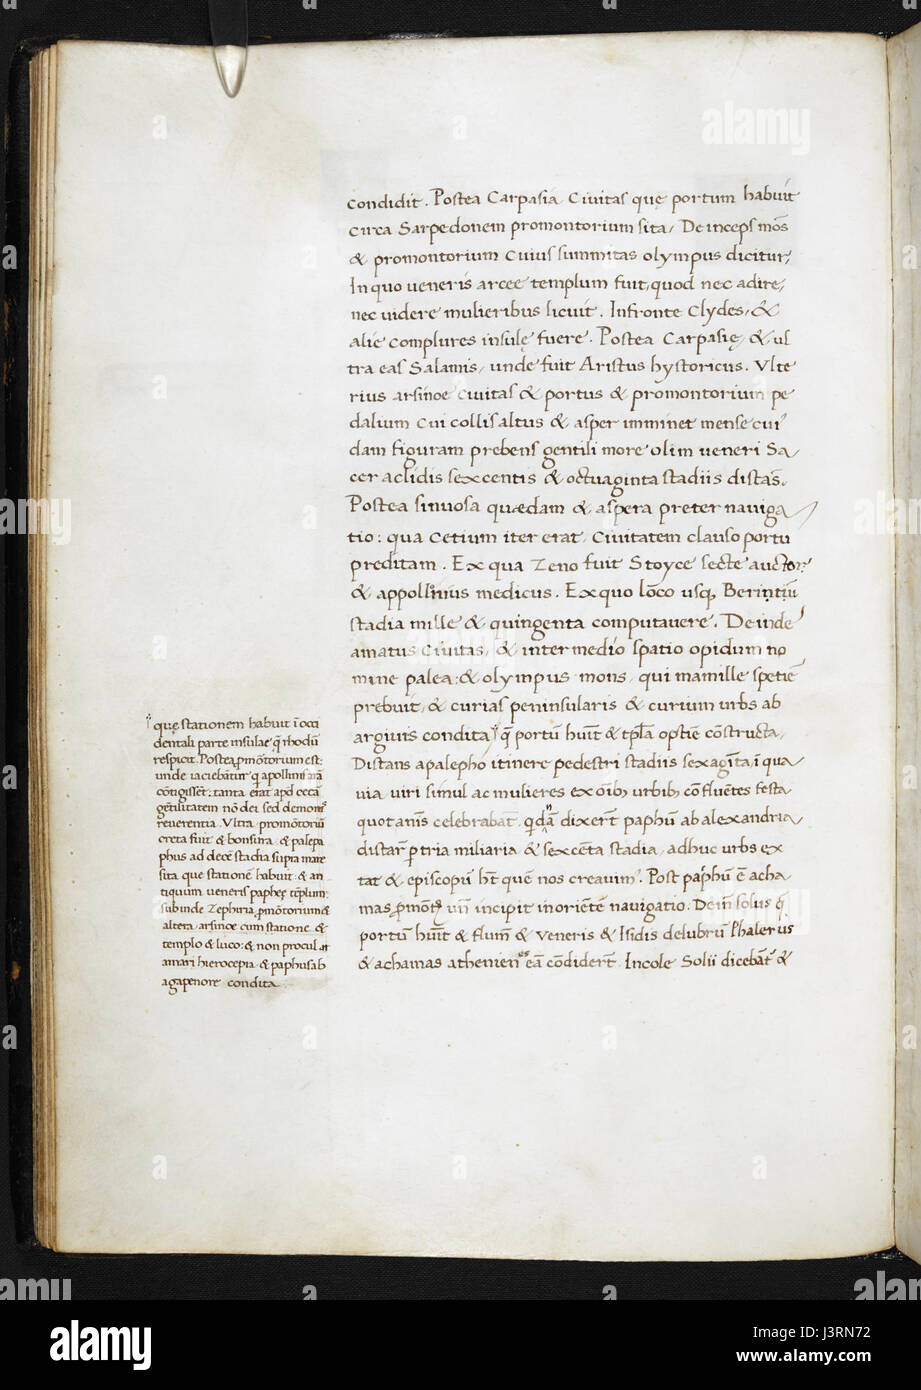 condidit. Postea Carpasia Civitas quę portum habuit
circa Sarpedonem promontorium sita, Deinceps mōs
& promontorium cuius summitas olympus dicitur,
In quo veneris arcee templum fuit, quod nec adire,
nec videre mulieribus licuit. Infronte Clydes, &
alie complures insulę fuere. Postea Carpasię, & ul
tra eas Salamis, unde fuit Aristus hystoricus. Vlte
rius arsinoe Civitas & portus & promontorium pe
dalium cui collis altus & asper imminet mense cui
dam figuram prebens gentili more olim veneri Sa,
cer aclidis sexcentis & octuaginta stadiis distās.
Postea sinuosa quædam & aspera preter naviga
tio: qua Cetium iter erat, Civitatem clauso portu
preditam. Ex qua Zeno fuit Stoyce secte auctor
& appollonius medicus. Ex quo lōco usq; Berintiū
stadia mille & quingenta computavere. Deinde
amatus Civitas, & intermedio spatio opidum no
mine palea: & olympus mons, qui mamille spetiē
prebuit, & curias peninsularis & curium urbs ab
argivis condita, q̄ portū hūit & tp̄la optīe cōstructa,
Distans apalepho itinere pedestri stadiis sexagīta, ī qua
via, viri simul ac mulieres ex oīb; urbib; cōfluētes festa
quotānis celebrabāt. dixert paphū ab alexandria
distar p tria miliaria & sexcēta stadia, adhuc urbs ex
tat & episcopū ht quē nos creavim'. Post paphū ē acha
mas pmōt; incipit in oriētē navigatio: Deīn solus q̄
portū hūit & flum̄ & veneris & Isidis delubrū Phalerus
& achamas athenienes eā cōdidert. Incole Solii dicebāt &
quę stationem habuit ī occi
dentali parte insulae q̄ rhodū
respicit. Postea pmōtorium est:
unde iaciebātur q apollinis arā
cōtigisset: tanta erat apd cetā
gētilitatem nō dei sed demonis
reverentia. Vltra promōtoriū
creta fuit & bonsura & palepa
phus ad decē stadia supra mare
sita que stationē habuit & an
tiquum veneris paphes tēplum:
subinde Zephiria pmōtorium &
altera arsinoe cum statione &
templo & luco: & non procul at
amari hierocepia & paphus ab
agapenore condita
alamy
a
alamy
Image ID: J3RN72
www.alamy.com